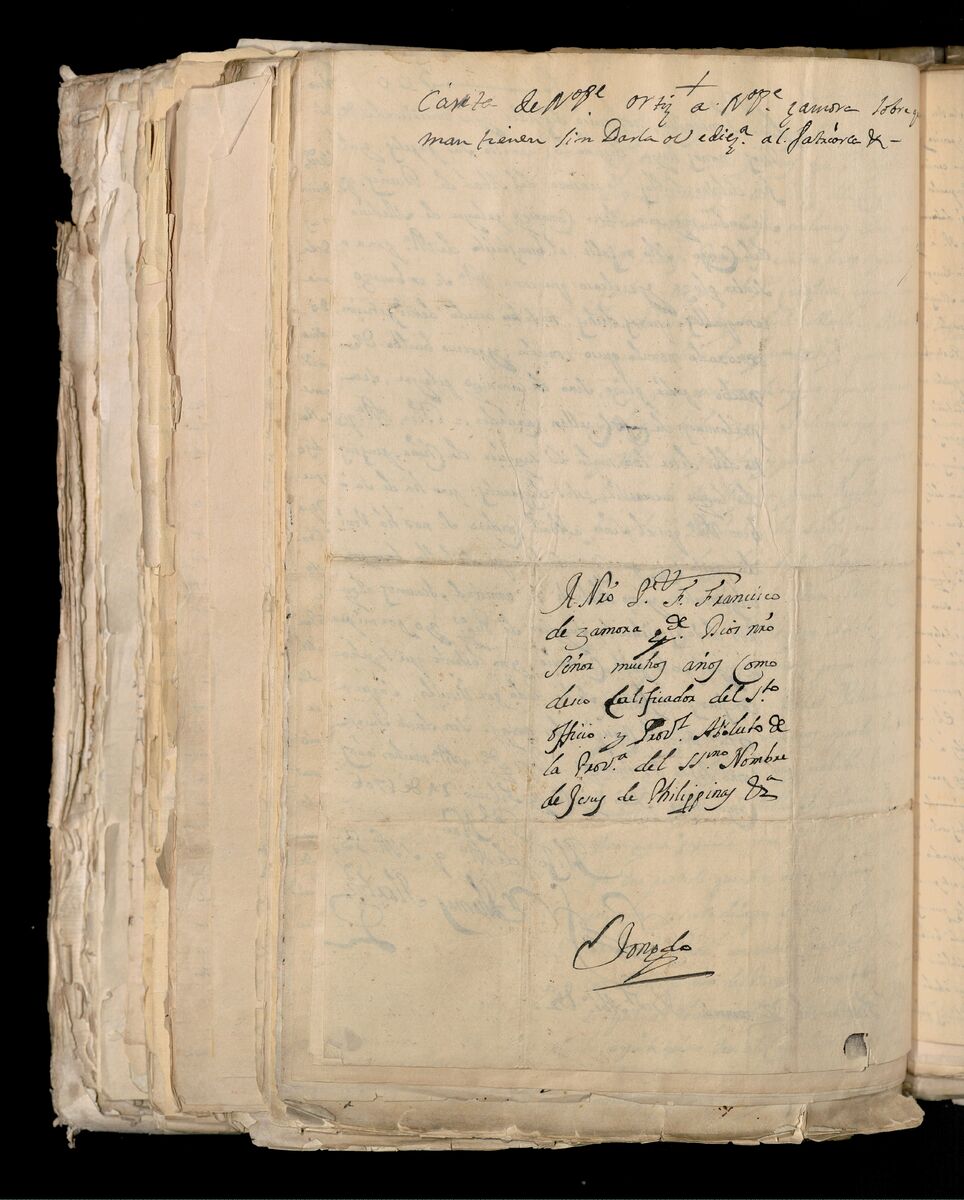 +
Carta de N.o p.e ortiz a N.o p.e zamora sobre q
mantienen sin Darla ovediez.a al Patriarca &-
A Nro P.e F. Francisco
de zamora g.de Dios nro
Señor muchos años Como
deseo Calificador del S.to
officio y Prov.l Absoluto de
la Prov.a del SS.mo Nombre
de Jesus de Philippinas &.a